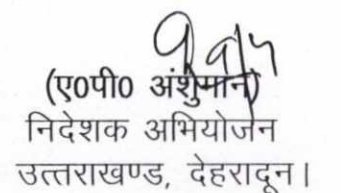 (ए0पी0 अंशुमान)
निदेशक अभियोजन
उत्तराखण्ड, देहरादून।